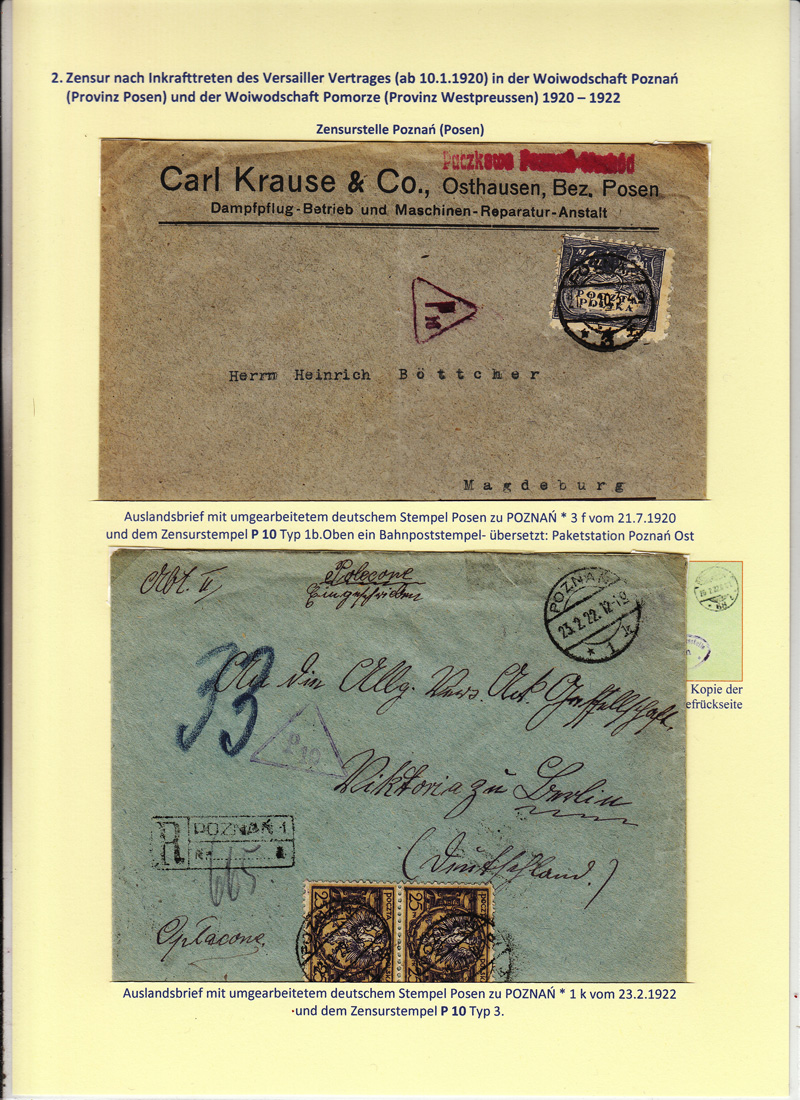 2. Zensur nach Inkrafttreten des Versailler Vertrages (ab 10.1.1920) in der Woiwodschaft Poznań
(Provinz Posen) und der Woiwodschaft Pomorze (Provinz Westpreussen) 1920 – 1922
Zensurstelle Poznań (Posen)
Carl Krause & Co., Osthausen, Bez. Posen
Dampfpflug-Betrieb und Maschinen-Reparatur-Anstalt
P 10
POCZTA
POLSKA
Herrn Heinrich Böttcher
Magdeburg
Auslandsbrief mit umgearbeitetem deutschem Stempel Posen zu POZNAŃ * 3 f vom 21.7.1920
und dem Zensurstempel P 10 Typ 1b.Oben ein Bahnpoststempel- übersetzt: Paketstation Poznań Ost
Abt. II
Polecone
Eingeschrieben
POZNAŃ
23.2.22.12-1
* 1 k
33
An die Allg. Vers. Akt. Gesellschaft
P 10
Viktoria zu Berlin
(Deutschland.)
R POZNAŃ 1
665
Opłacone
25 POCZTA
25 POCZTA
Kopie der
efrückseite
Auslandsbrief mit umgearbeitetem deutschem Stempel Posen zu POZNAŃ * 1 k vom 23.2.1922
und dem Zensurstempel P 10 Typ 3.